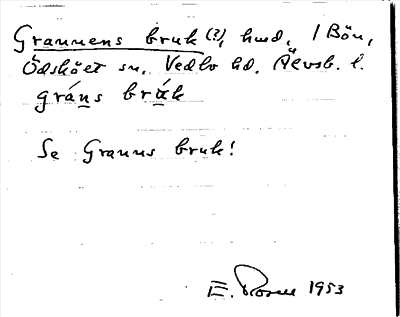 Grannens bruk (?), hmd, 1 Bön,
Ödskölt sn, Vedbo hd. Älvsb. l.
gráns brúk
Se Granns bruk!
E. Rosell 1953